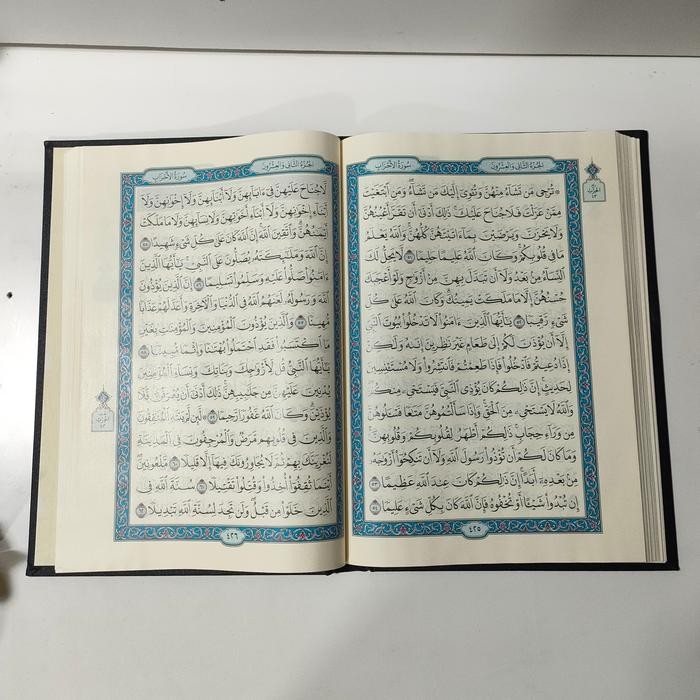 الجزء الثاني والعشرون
سورة الأحزاب
۞ تُرْجِي مَن تَشَآءُ مِنْهُنَّ وَتُـْٔوِيٓ إِلَيْكَ مَن تَشَآءُۖ وَمَنِ ٱبْتَغَيْتَ
مِمَّنْ عَزَلْتَ فَلَا جُنَاحَ عَلَيْكَۚ ذَٰلِكَ أَدْنَىٰٓ أَن تَقَرَّ أَعْيُنُهُنَّ
وَلَا يَحْزَنَّ وَيَرْضَيْنَ بِمَآ ءَاتَيْتَهُنَّ كُلُّهُنَّۚ وَٱللَّهُ يَعْلَمُ
مَا فِي قُلُوبِكُمْۚ وَكَانَ ٱللَّهُ عَلِيمًا حَلِيمًا ٥١ لَّا يَحِلُّ لَكَ
ٱلنِّسَآءُ مِنۢ بَعْدُ وَلَآ أَن تَبَدَّلَ بِهِنَّ مِنْ أَزْوَٰجٍ وَلَوْ أَعْجَبَكَ
حُسْنُهُنَّ إِلَّا مَا مَلَكَتْ يَمِينُكَۗ وَكَانَ ٱللَّهُ عَلَىٰ كُلِّ
شَيْءٍ رَّقِيبًا ٥٢ يَٰٓأَيُّهَا ٱلَّذِينَ ءَامَنُوا۟ لَا تَدْخُلُوا۟ بُيُوتَ ٱلنَّبِيِّ
إِلَّآ أَن يُؤْذَنَ لَكُمْ إِلَىٰ طَعَامٍ غَيْرَ نَٰظِرِينَ إِنَىٰهُ وَلَٰكِنْ
إِذَا دُعِيتُمْ فَٱدْخُلُوا۟ فَإِذَا طَعِمْتُمْ فَٱنتَشِرُوا۟ وَلَا مُسْتَـْٔنِسِينَ
لِحَدِيثٍۚ إِنَّ ذَٰلِكُمْ كَانَ يُؤْذِي ٱلنَّبِيَّ فَيَسْتَحْيِۦ مِنكُمْۖ
وَٱللَّهُ لَا يَسْتَحْيِۦ مِنَ ٱلْحَقِّۚ وَإِذَا سَأَلْتُمُوهُنَّ مَتَٰعًا فَسْـَٔلُوهُنَّ
مِن وَرَآءِ حِجَابٍۚ ذَٰلِكُمْ أَطْهَرُ لِقُلُوبِكُمْ وَقُلُوبِهِنَّۚ
وَمَا كَانَ لَكُمْ أَن تُؤْذُوا۟ رَسُولَ ٱللَّهِ وَلَآ أَن تَنكِحُوٓا۟ أَزْوَٰجَهُۥ
مِنۢ بَعْدِهِۦٓ أَبَدًاۚ إِنَّ ذَٰلِكُمْ كَانَ عِندَ ٱللَّهِ عَظِيمًا ٥٣
إِن تُبْدُوا۟ شَيْـًٔا أَوْ تُخْفُوهُ فَإِنَّ ٱللَّهَ كَانَ بِكُلِّ شَيْءٍ عَلِيمًا ٥٤
٤٢٥
الحزب
٤٣
الجزء الثاني والعشرون
سورة الأحزاب
لَّا جُنَاحَ عَلَيْهِنَّ فِيٓ ءَابَآئِهِنَّ وَلَآ أَبْنَآئِهِنَّ وَلَآ إِخْوَٰنِهِنَّ وَلَآ
أَبْنَآءِ إِخْوَٰنِهِنَّ وَلَآ أَبْنَآءِ أَخَوَٰتِهِنَّ وَلَا نِسَآئِهِنَّ وَلَا مَا مَلَكَتْ
أَيْمَٰنُهُنَّۗ وَٱتَّقِينَ ٱللَّهَۚ إِنَّ ٱللَّهَ كَانَ عَلَىٰ كُلِّ شَيْءٍ شَهِيدًا ٥٥
إِنَّ ٱللَّهَ وَمَلَٰٓئِكَتَهُۥ يُصَلُّونَ عَلَى ٱلنَّبِيِّۚ يَٰٓأَيُّهَا ٱلَّذِينَ
ءَامَنُوا۟ صَلُّوا۟ عَلَيْهِ وَسَلِّمُوا۟ تَسْلِيمًا ٥٦ إِنَّ ٱلَّذِينَ يُؤْذُونَ
ٱللَّهَ وَرَسُولَهُۥ لَعَنَهُمُ ٱللَّهُ فِي ٱلدُّنْيَا وَٱلْءَاخِرَةِ وَأَعَدَّ لَهُمْ عَذَابًا
مُّهِينًا ٥٧ وَٱلَّذِينَ يُؤْذُونَ ٱلْمُؤْمِنِينَ وَٱلْمُؤْمِنَٰتِ بِغَيْرِ
مَا ٱكْتَسَبُوا۟ فَقَدِ ٱحْتَمَلُوا۟ بُهْتَٰنًا وَإِثْمًا مُّبِينًا ٥٨
يَٰٓأَيُّهَا ٱلنَّبِيُّ قُل لِّأَزْوَٰجِكَ وَبَنَاتِكَ وَنِسَآءِ ٱلْمُؤْمِنِينَ
يُدْنِينَ عَلَيْهِنَّ مِن جَلَٰبِيبِهِنَّۚ ذَٰلِكَ أَدْنَىٰٓ أَن يُعْرَفْنَ فَلَا
يُؤْذَيْنَۗ وَكَانَ ٱللَّهُ غَفُورًا رَّحِيمًا ٥٩ ۞ لَّئِن لَّمْ يَنتَهِ ٱلْمُنَٰفِقُونَ
وَٱلَّذِينَ فِي قُلُوبِهِم مَّرَضٌ وَٱلْمُرْجِفُونَ فِي ٱلْمَدِينَةِ
لَنُغْرِيَنَّكَ بِهِمْ ثُمَّ لَا يُجَاوِرُونَكَ فِيهَآ إِلَّا قَلِيلًا ٦٠ مَّلْعُونِينَۖ
أَيْنَمَا ثُقِفُوٓا۟ أُخِذُوا۟ وَقُتِّلُوا۟ تَقْتِيلًا ٦١ سُنَّةَ ٱللَّهِ فِي
ٱلَّذِينَ خَلَوْا۟ مِن قَبْلُۖ وَلَن تَجِدَ لِسُنَّةِ ٱللَّهِ تَبْدِيلًا ٦٢
٤٢٦
الحزب
٤٣